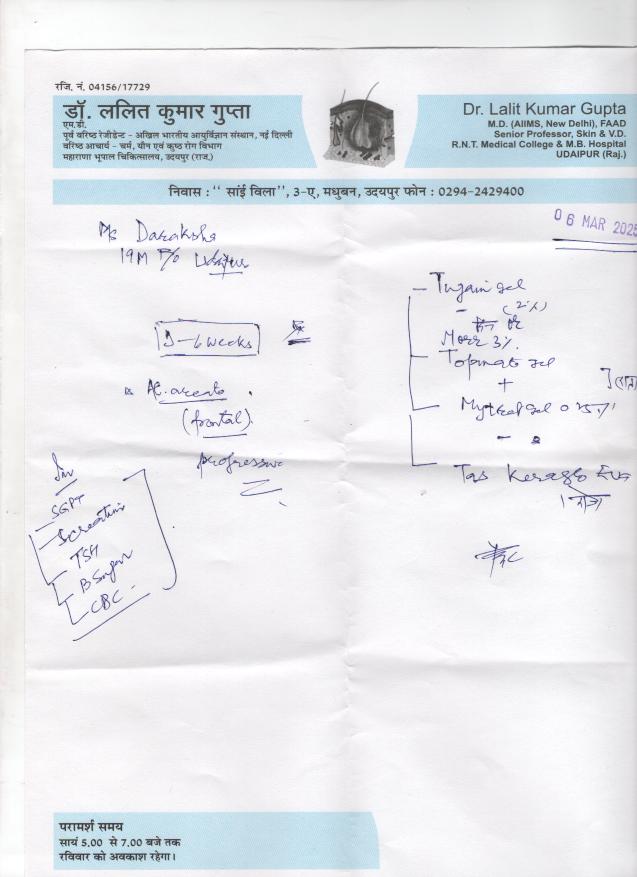 रजि. नं. 04156/17729
डॉ. ललित कुमार गुप्ता
एम.डी.
पूर्व वरिष्ठ रेजीडेन्ट - अखिल भारतीय आयुर्विज्ञान संस्थान, नई दिल्ली
वरिष्ठ आचार्य - चर्म, यौन एवं कुष्ठ रोग विभाग
महाराणा भूपाल चिकित्सालय, उदयपुर (राज.)
Dr. Lalit Kumar Gupta
M.D. (AIIMS, New Delhi), FAAD
Senior Professor, Skin & V.D.
R.N.T. Medical College & M.B. Hospital
UDAIPUR (Raj.)
निवास : '' सांई विला'', 3-ए, मधुबन, उदयपुर फोन : 0294-2429400
06 MAR 2025
Daraksha
D-6 weeks
Al. areata
(frontal)
progressive
Inv
SGPT
S creatinine
TSH
B Sugar
CBC
Tugain gel
(2%)
3%
gel
+
gel 0.25%
Tab
परामर्श समय
सायं 5.00 से 7.00 बजे तक
रविवार को अवकाश रहेगा।